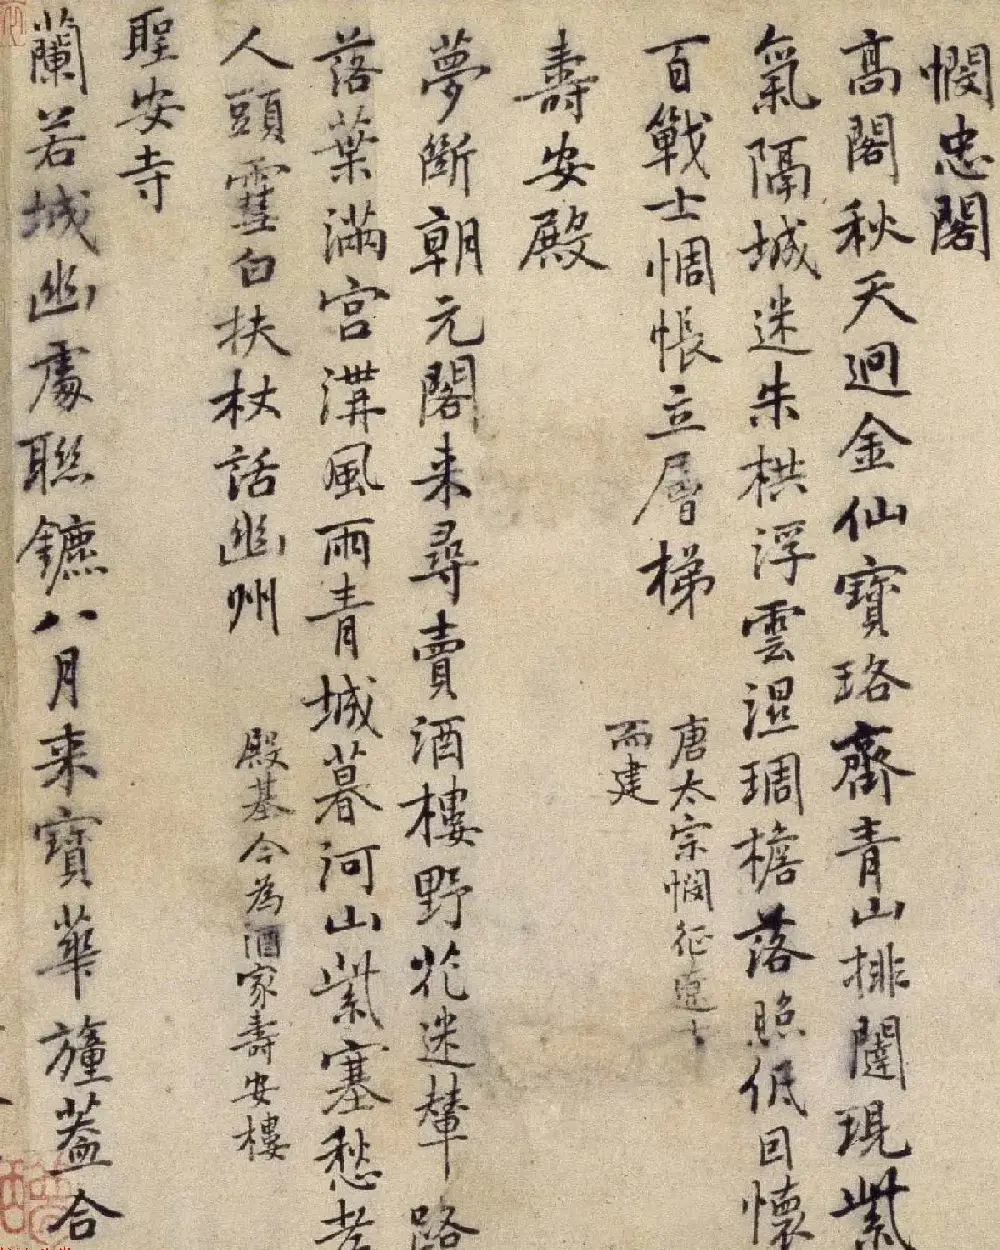 憫忠閣
高閣秋天迥金仙寶珞齊青山排闥現紫
氣隔城迷朱栱浮雲濕琱檐落照低回懷
百戰士惆悵立層梯
唐太宗憫征遼士
而建
壽安殿
夢斷朝元閣来尋賣酒樓野花迷輦路
落葉滿宮溝風雨青城暮河山紫塞愁老
人頭雪白扶杖話幽州
殿基今為酒家壽安樓
聖安寺
蘭若城幽處聯鑣八月来寶華幢蓋合